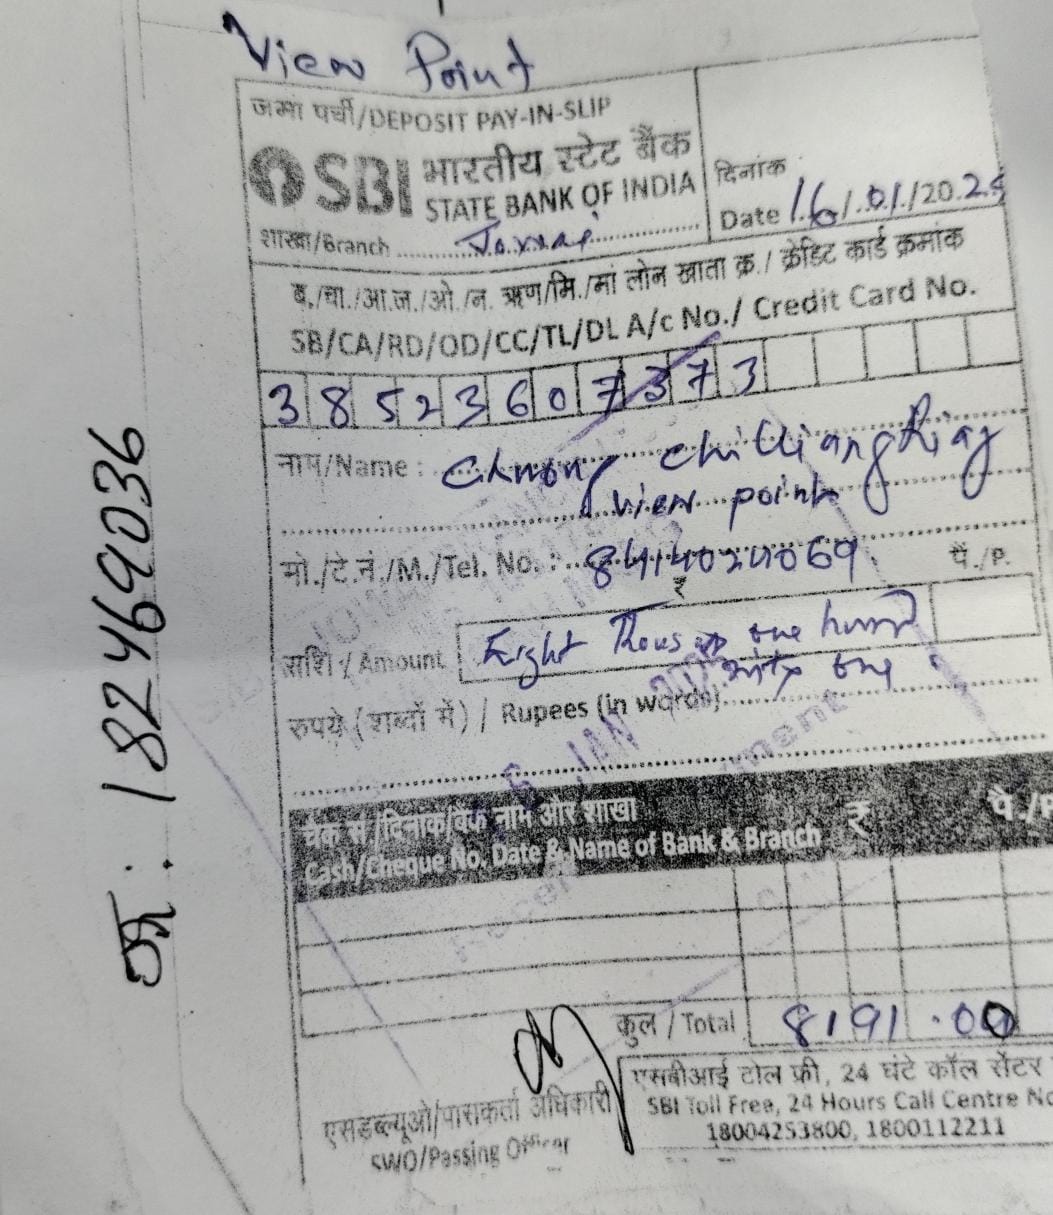 View Point
जमा पर्ची/DEPOSIT PAY-IN-SLIP
SBI भारतीय स्टेट बैंक
STATE BANK OF INDIA
शाखा/Branch
दिनांक
Date 16/01/2025
ब./चा./आ.ज./ओ./न. ऋण/मि./मां लोन खाता क्र./ क्रेडिट कार्ड क्रमांक
SB/CA/RD/OD/CC/TL/DL A/c No./ Credit Card No.
38523607373
नाम/Name :
view point
मो./टे.नं./M./Tel. No. : 8414024069
₹ पै./P.
राशि / Amount Eight Thous one hund
one
रुपये (शब्दों में) / Rupees (in words)
चेक सं./दिनांक/बैंक नाम और शाखा ₹ पै./P
Cash/Cheque No. Date & Name of Bank & Branch
कुल / Total 8191.00
एसडब्ल्यूओ/पासकर्ता अधिकारी
SWO/Passing Officer
एसबीआई टोल फ्री, 24 घंटे कॉल सेंटर
SBI Toll Free, 24 Hours Call Centre No
18004253800, 1800112211
182469036